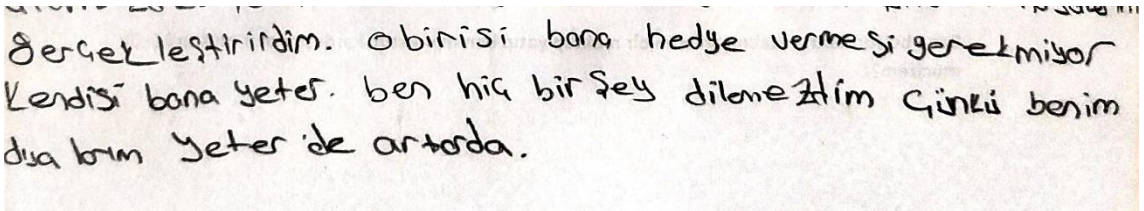 gerçekleştirirdim. Obirisi bana hedye vermesi gerekmiyor
Kendisi bana yeter. ben hiç bir şey dilemeztim Çünkü benim
yeter de artarda.